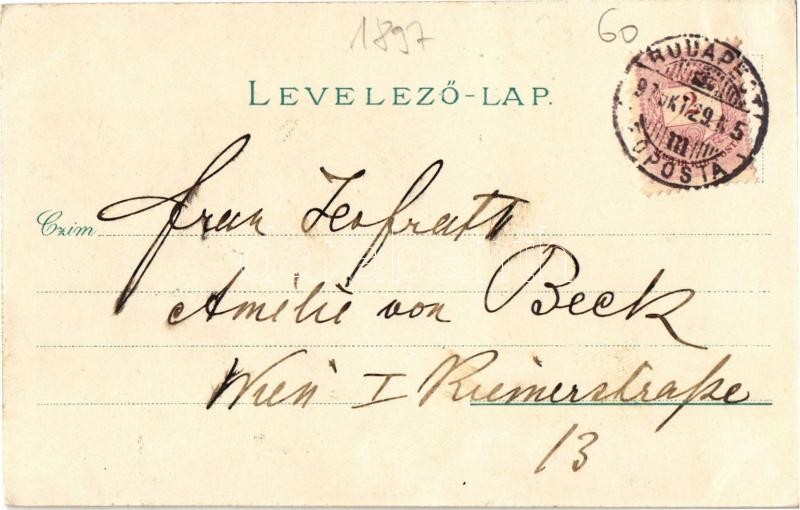 1897
60
LEVELEZŐ-LAP.
BUDAPEST
97 OKT. 29 N 5
m
FŐPOSTA
Czim
Frau Hofrath
Amélie von Beck
Wien I Riemerstraße
13